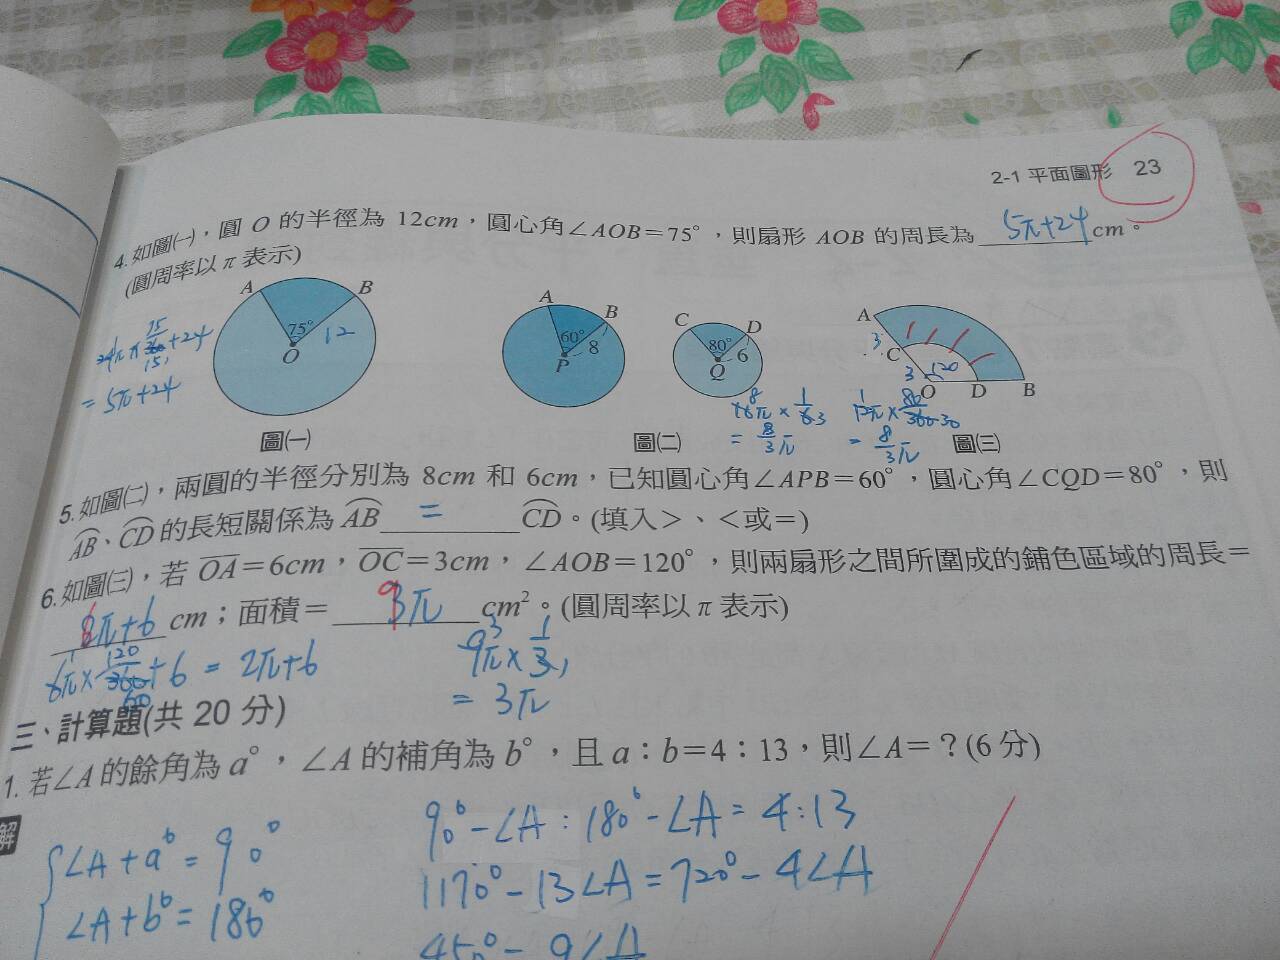 2-1 平面圖形 23
4. 如圖㈠，圓 O 的半徑為 12cm，圓心角∠AOB＝75°，則扇形 AOB 的周長為 5π+24 cm。
(圓周率以 π 表示)
A B 75° 12 O
A B 60° 8 P
C D 80° 6 Q
A 3 C 3 120 O D B
24π × 75/360 + 24
15
= 5π+24
16π × 1/6 3
8
= 8/3 π
12π × 80/360 30
1
= 8/3 π
圖㈠ 圖㈡ 圖㈢
5. 如圖㈡，兩圓的半徑分別為 8cm 和 6cm，已知圓心角∠APB＝60°，圓心角∠CQD＝80°，則
AB、CD 的長短關係為 AB = CD。(填入＞、＜或＝)
6. 如圖㈢，若 OA＝6cm，OC＝3cm，∠AOB＝120°，則兩扇形之間所圍成的鋪色區域的周長＝
π+6 cm；面積＝ π cm²。(圓周率以 π 表示)
6π × 120/360 + 6 = 2π+6
1 60
9π × 1/3
3 1
= 3π
三、計算題(共 20 分)
1. 若∠A 的餘角為 a°，∠A 的補角為 b°，且 a：b＝4：13，則∠A＝？(6 分)
解
∠A + a° = 90°
∠A + b° = 180°
90° - ∠A : 180° - ∠A = 4:13
1170° - 13∠A = 720° - 4∠A
450° = 9∠A